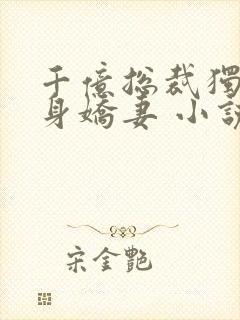 千億總裁獨
身嬌妻 小說
宋金艷